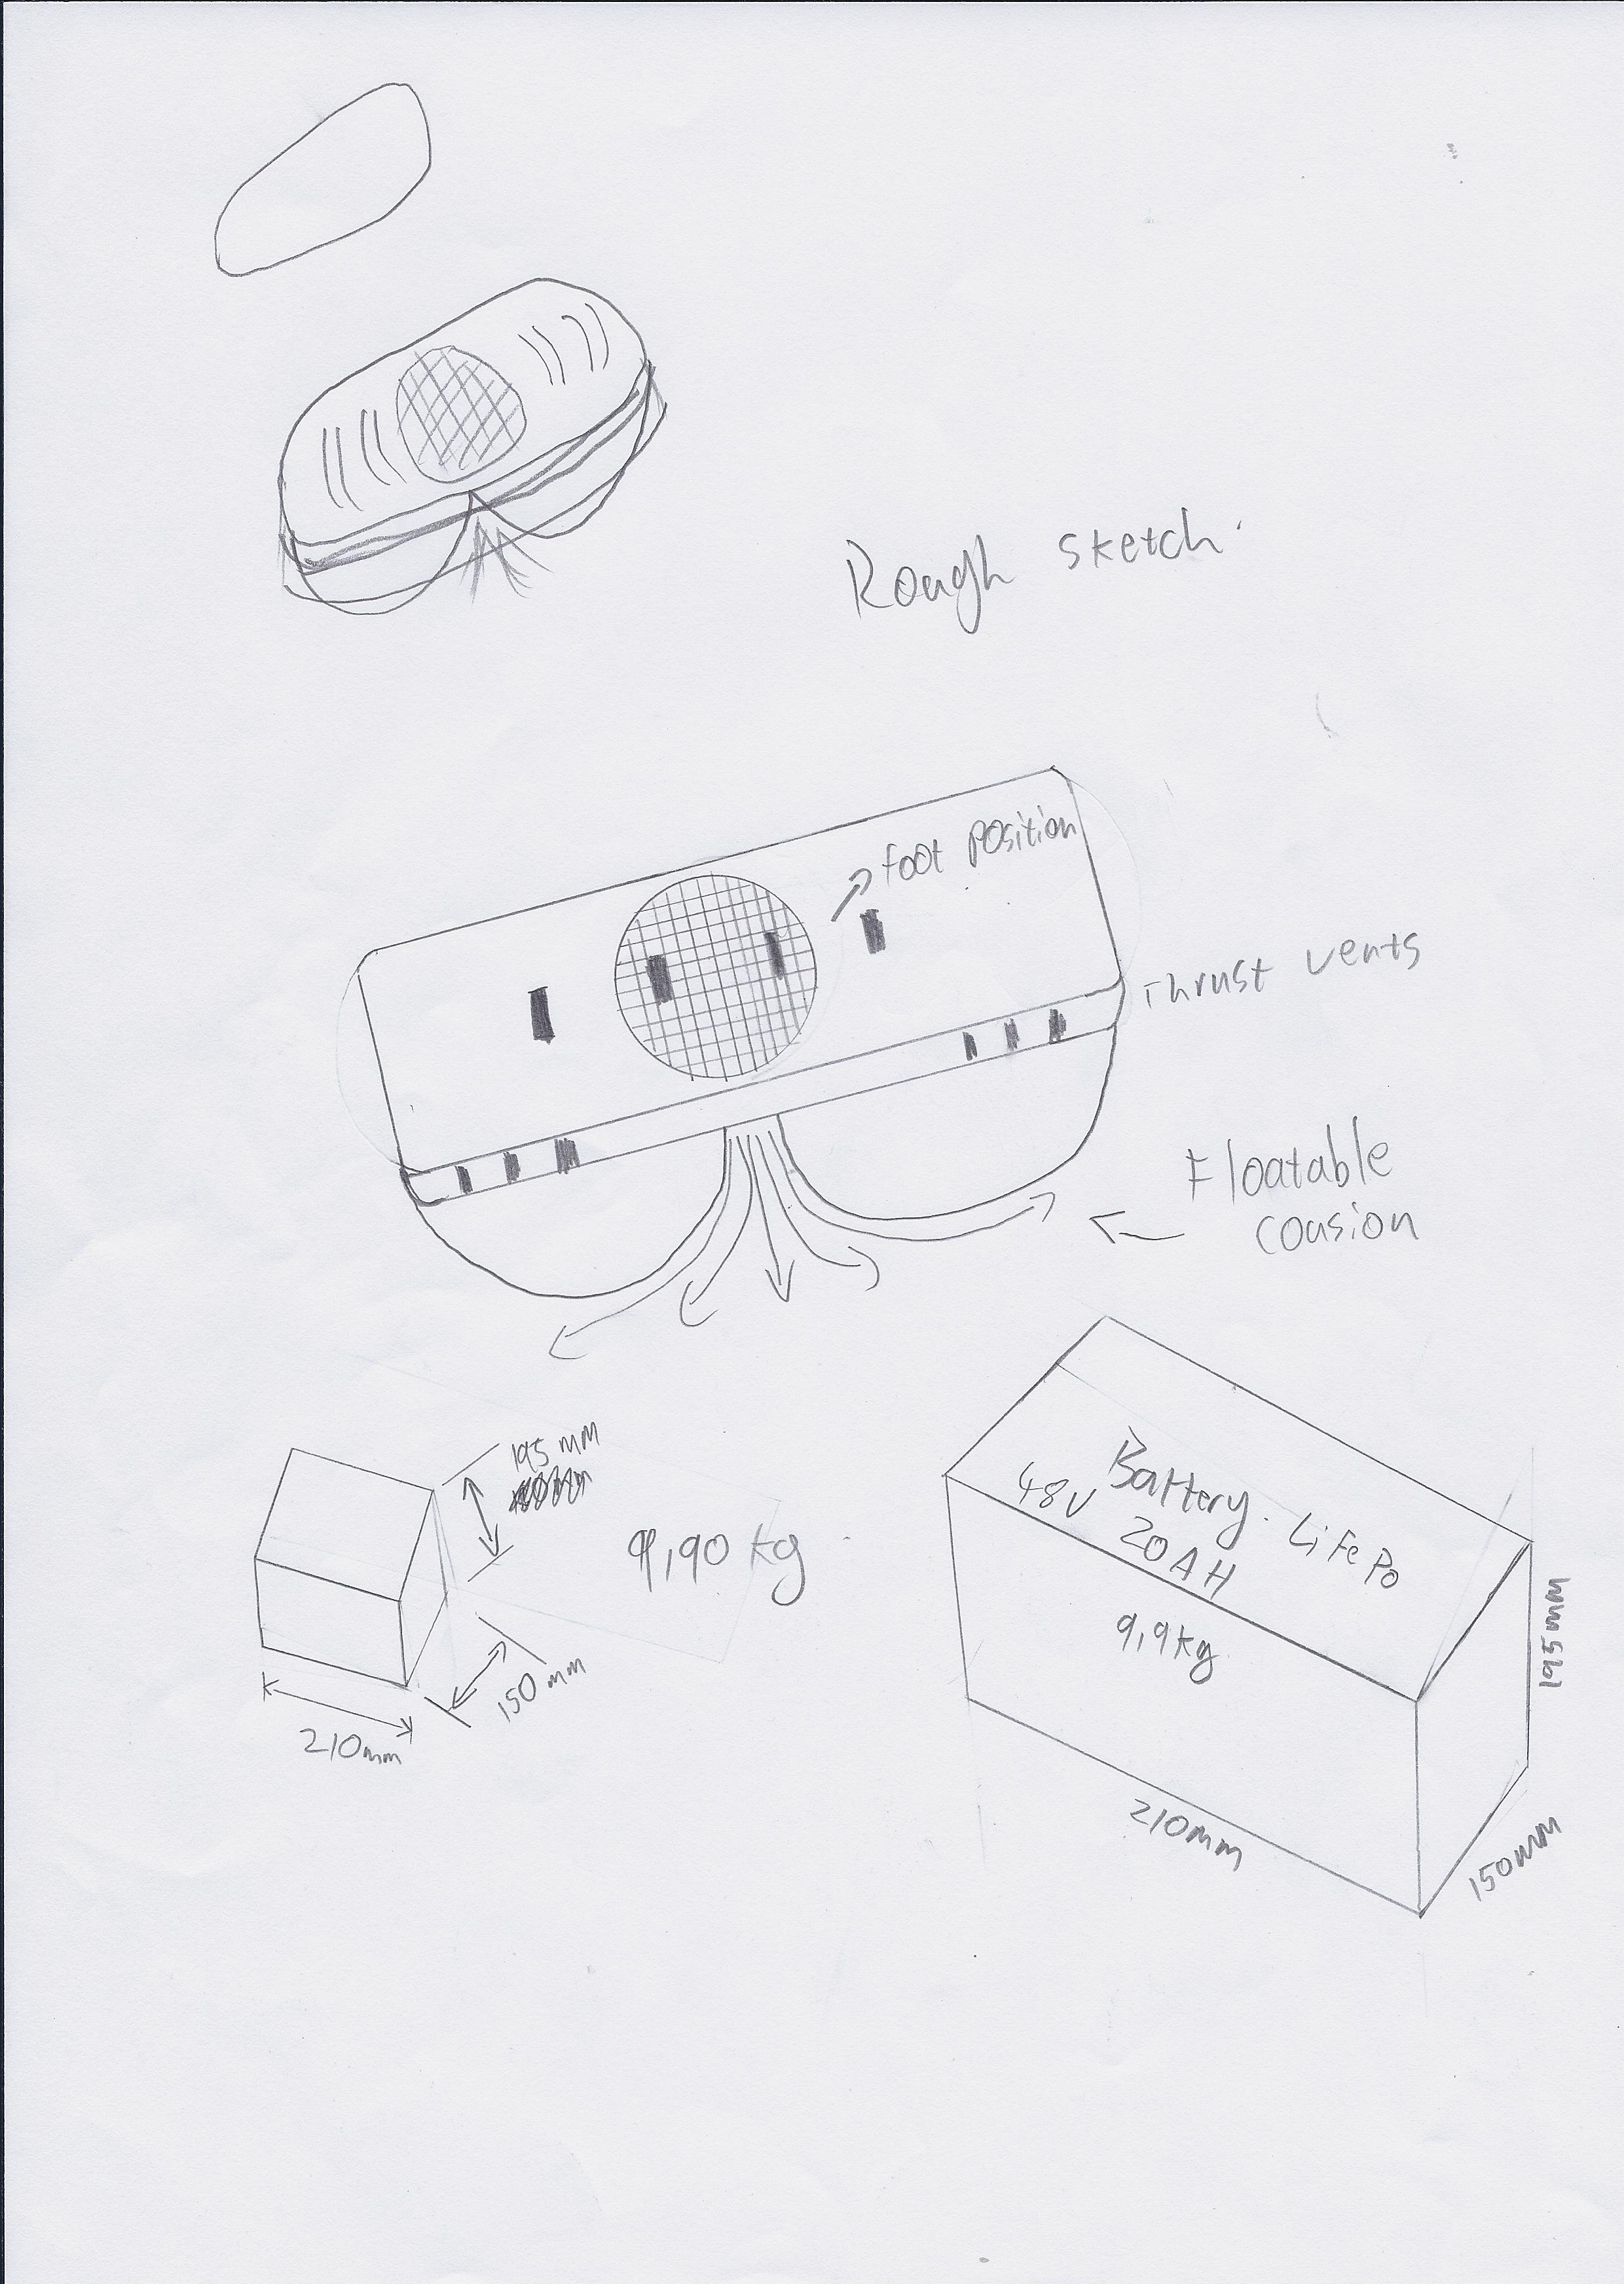 Rough sketch.
foot position
Thrust vents
Floatable
cousion
195 mm
9,90 kg
150 mm
210mm
Battery. LiFePo
48V 20AH
9,9kg
195mm
210mm
150mm